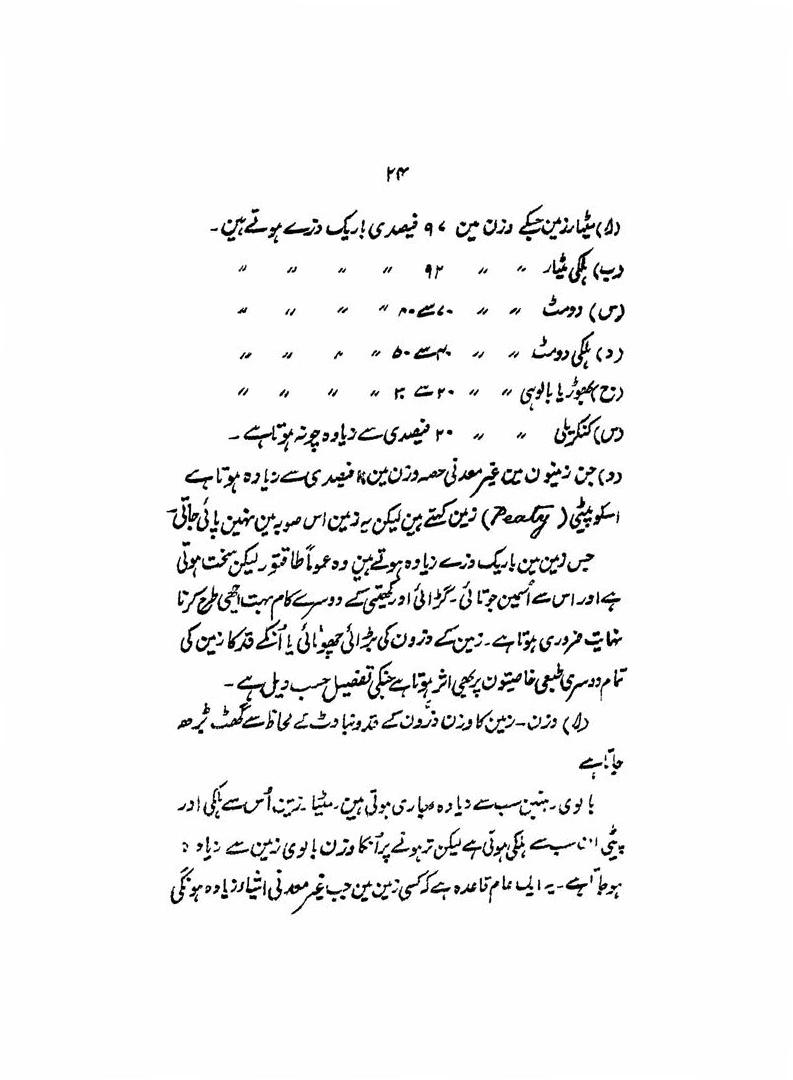 ۲۴
(ا) مٹیار زمین جسکے وزن مین ۹۷ فیصدی باریک ذرے ہوتے ہین۔
(ب) ہلکی مٹیار 〃 〃 ۹۲ 〃 〃 〃 〃
(س) دومٹ 〃 〃 ۷۰ سے ۸۰ 〃 〃 〃 〃
(د) ہلکی دومٹ 〃 〃 ۴۰ سے ۵۰ 〃 〃 〃 〃
(ح) بھوڑ یا بالوہی 〃 〃 ۲۰ سے ۳۰ 〃 〃 〃 〃
(س) کنکریلی 〃 〃 ۲۰ فیصدی سے زیادہ چونہ ہوتا ہے۔
(و) جن زمینون مین غیر معدنی حصہ وزن مین فیصدی سے زیادہ ہوتا ہے
اسکو پیٹی (Peaty) زمین کہتے ہین لیکن یہ زمین اس صوبہ مین نہین پائی جاتی۔
جس زمین مین باریک ذرے زیادہ ہوتے ہین وہ عموماً طاقتور لیکن سخت ہوتی
ہے اور اس سے اُسمین جوتائی۔ گڑائی اور کھیتی کے دوسرے کام بہت اچھی طرح کرنا
نہایت ضروری ہوتا ہے۔ زمین کے ذرون کی بڑائی چھوٹائی یا اُنکے قد کا زمین کی
تمام دوسری طبعی خاصیتون پر بھی اثر ہوتا ہے جنکی تفصیل حسب ذیل ہے۔
(ا) وزن۔ زمین کا وزن ذرون کے قد و بناوٹ کے لحاظ سے گھٹ بڑھ
جاتا ہے
بالوی۔ زمین سب سے زیادہ بھاری ہوتی ہین۔ مٹیار۔ زمین اُس سے ہلکی اور
پیٹی ان سب سے ہلکی ہوتی ہے لیکن تر ہونے پر اُنکا وزن بالوی زمین سے زیادہ
ہو جاتا ہے۔ یہ ایک عام قاعدہ ہے کہ کسی زمین مین جب غیر معدنی اشیاء زیادہ ہونگی